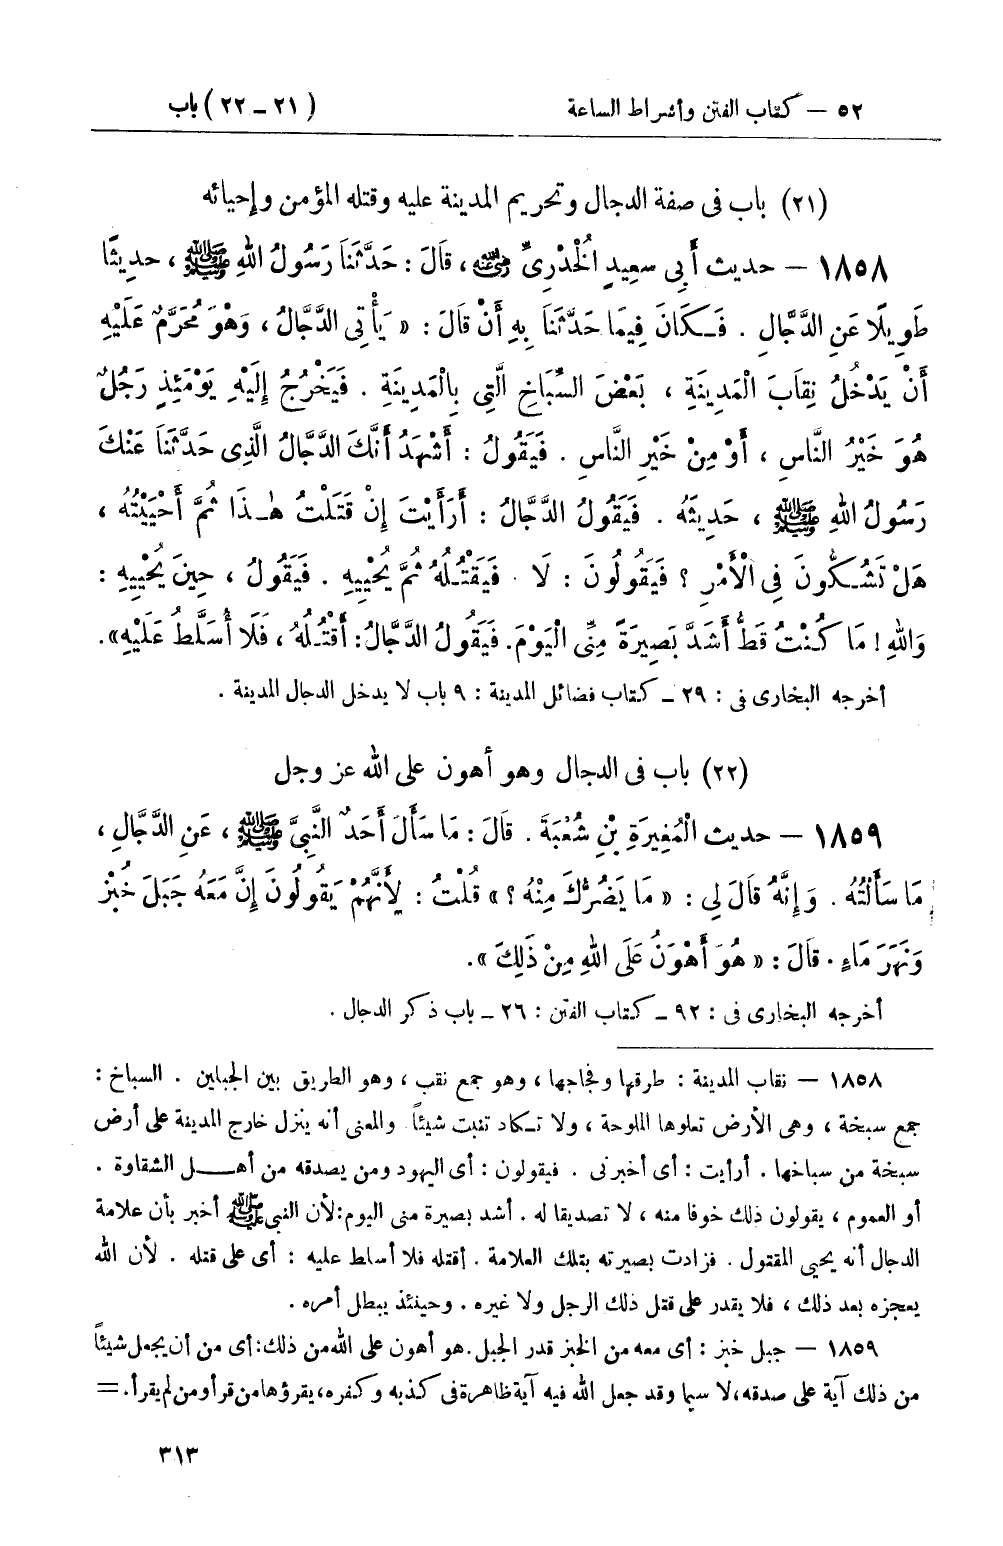 ٥٢ – كتاب الفتن وأشراط الساعة (٢١ – ٢٢) باب
(٢١) باب فى صفة الدجال وتحريم المدينة عليه وقتله المؤمن وإحيائه
١٨٥٨ – حديث أَبِي سعيدٍ الْخُدْرِيِّ رضي الله عنه، قَالَ : حَدَّثَنَا رَسُولُ اللهِ ﷺ، حديثًا
طَوِيلًا عَنِ الدَّجَّالِ . فَكَانَ فِيمَا حَدَّثَنَا بِهِ أَنْ قَالَ : « يَأْتِى الدَّجَّالُ ، وَهْوَ مُحَرَّمٌ عَلَيْهِ
أَنْ يَدْخُلُ نِقَابَ الْمَدِينَةِ ، بَعْضَ السِّبَاخِ الَّتِى بِالْمَدِينَةِ . فَيَخْرُجُ إِلَيْهِ يَوْمَئِذٍ رَجُلٌ
هُوَ خَيْرُ النَّاسِ ، أَوْ مِنْ خَيْرِ النَّاسِ . فَيَقُولُ : أَشْهَدُ أَنَّكَ الدَّجَّالُ الَّذِى حَدَّثَنَا عَنْكَ
رَسُولُ اللهِ ﷺ ، حَدِيثَهُ . فَيَقُولُ الدَّجَّالُ : أَرَأَيْتَ إِنْ قَتَلْتُ هٰذَا ثُمَّ أَحْيَيْتُهُ ،
هَلْ تَشُكُّونَ فِى الْأَمْرِ ؟ فَيَقُولُونَ : لَا . فَيَقْتُلُهُ ثُمَّ يُحْيِيهِ . فَيَقُولُ ، حِينَ يُحْيِيهِ :
وَاللهِ ! مَا كُنْتُ قَطُّ أَشَدَّ بَصِيرَةً مِنِّى الْيَوْمَ. فَيَقُولُ الدَّجَّالُ: أَقْتُلُهُ ، فَلَا أُسَلَّطُ عَلَيْهِ».
أخرجه البخارى فى : ٢٩ – كتاب فضائل المدينة : ٩ باب لا يدخل الدجال المدينة .
(٢٢) باب فى الدجال وهو أهون على الله عز وجل
١٨٥٩ – حديث الْمُغِيرَةِ بْنِ شُعْبَةَ . قَالَ : مَا سَأَلَ أَحَدٌ النَّبِيَّ ﷺ ، عَنِ الدَّجَّالِ ،
مَا سَأَلْتُهُ . وَإِنَّهُ قَالَ لِى : « مَا يَضُرُّكَ مِنْهُ ؟ » قُلْتُ : لِأَنَّهُمْ يَقُولُونَ إِنَّ مَعَهُ جَبَلَ خُبْزٍ
وَنَهَرَ مَاءٍ . قَالَ : « هُوَ أَهْوَنُ عَلَى اللهِ مِنْ ذَلِكَ ».
أخرجه البخارى فى : ٩٢ – كتاب الفتن : ٢٦ – باب ذكر الدجال .
١٨٥٨ – نقاب المدينة : طرقها وفجاجها ، وهو جمع نقب ، وهو الطريق بين الجبلين . السباخ :
جمع سبخة ، وهى الأرض تعلوها الملوحة ، ولا تكاد تنبت شيئاً والمعنى أنه ينزل خارج المدينة على أرض
سبخة من سباخها . أرأيت : أى أخبرنى . فيقولون : أى اليهود ومن يصدقه من أهل الشقاوة .
أو العموم ، يقولون ذلك خوفا منه ، لا تصديقا له . أشد بصيرة منى اليوم: لأن النبى ﷺ أخبر بأن علامة
الدجال أنه يحيى المقتول . فزادت بصيرته بتلك العلامة . أقتله فلا أسلط عليه : أى على قتله . لأن الله
يعجزه بعد ذلك ، فلا يقدر على قتل ذلك الرجل ولا غيره . وحينئذ يبطل أمره .
١٨٥٩ – جبل خبز : أى معه من الخبز قدر الجبل. هو أهون على الله من ذلك: أى من أن يجعل شيئاً
من ذلك آية على صدقه، لا سيما وقد جعل الله فيه آية ظاهرة فى كذبه وكفره، يقرؤها من قرأ ومن لم يقرأ. =
٣١٣